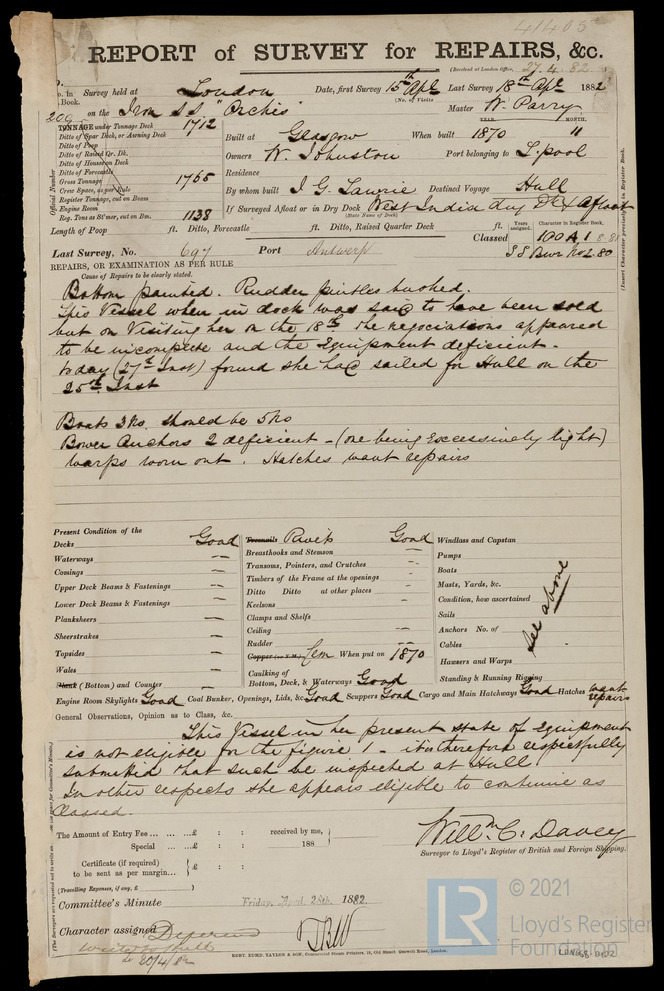 41405
REPORT of SURVEY for REPAIRS, &c.
(Received at London Office, 27.4.82.
No. in Survey held at London Date, first Survey 15th Apl Last Survey 18th Apl 1882
Book. (No. of Visits
206 on the Iron S.S. "Orchis" Master W. Parry
TONNAGE under Tonnage Deck 1712
Ditto of Spar Deck, or Awning Deck
Ditto of Poop
Ditto of Raised Qr. Dk.
Ditto of House on Deck
Ditto of Forecastle
Gross Tonnage 1765
Crew Space, as per Rule
Register Tonnage, cut on Beam
Engine Room
Reg. Tons as St'mer, cut on Bm. 1138
Official Number
YEAR. MONTH.
Built at Glasgow When built 1870 11
Owners W. Johnston Port belonging to L'pool
Residence
By whom built J G Lawrie Destined Voyage Hull
If Surveyed Afloat or in Dry Dock West India dry Dk & afloat
(State Name of Dock)
Length of Poop ft. Ditto, Forecastle ft. Ditto, Raised Quarter Deck ft.
Years assigned. Character in Register Book.
Classed 100 A1 8.81
Last Survey, No. 697 Port Antwerp SS Bwr No2.80
(Insert Character precisely as in Register Book.
REPAIRS, OR EXAMINATION AS PER RULE
Cause of Repairs to be clearly stated.
Bottom painted. Rudder pintles bushed.
This Vessel when in dock was said to have been sold
but on visiting her on the 18th the negociations appeared
to be incomplete and the Equipment deficient.
today (27th Inst) found she had sailed for Hull on the
25th Inst
Boats 3 No. should be 5 No
Bower Anchors 2 deficient - (one being excessively light)
Warps worn out. Hatches want repairs
Present Condition of the
Decks Good
Waterways "
Comings "
Upper Deck Beams & Fastenings "
Lower Deck Beams & Fastenings "
Planksheers "
Sheerstrakes "
Topsides "
Wales "
Plank (Bottom) and Counter "
Treenails Rivets Good
Breasthooks and Stemson "
Transoms, Pointers, and Crutches "
Timbers of the Frame at the openings "
Ditto Ditto at other places "
Keelsons "
Clamps and Shelfs
Ceiling "
Rudder "
Copper (or Y.M.) Cem When put on 1870
Caulking of
Bottom, Deck, & Waterways Good
Windlass and Capstan
Pumps
Boats
Masts, Yards, &c.
Condition, how ascertained
Sails
Anchors No. of
Cables
Hawsers and Warps
Standing & Running Rigging
See above
Engine Room Skylights Good Coal Bunker, Openings, Lids, &c. Good Scuppers Good Cargo and Main Hatchways Good Hatches want repairs
General Observations, Opinion as to Class, &c.
This Vessel in her present state of Equipment
is not eligible for the figure 1 - it is therefore respectfully
submitted that such be inspected at Hull
In other respects she appears eligible to continue as
Classed.
The Amount of Entry Fee ... ... ...£ : : received by me,
Special ... ...£ : : 188
Certificate (if required)
to be sent as per margin... £ : :
(Travelling Expenses, if any, £ )
Willm C. Davey
Surveyor to Lloyd's Register of British and Foreign Shipping.
Committee's Minute Friday, April 28th, 1882.
Character assigned Deferred
write to Hull
TBW
ROBT. EDMD. TAYLOR & SON, Commercial Steam Printers, 19, Old Street Goswell Road, London.
LR
© 2021
Lloyd's Register
Foundation